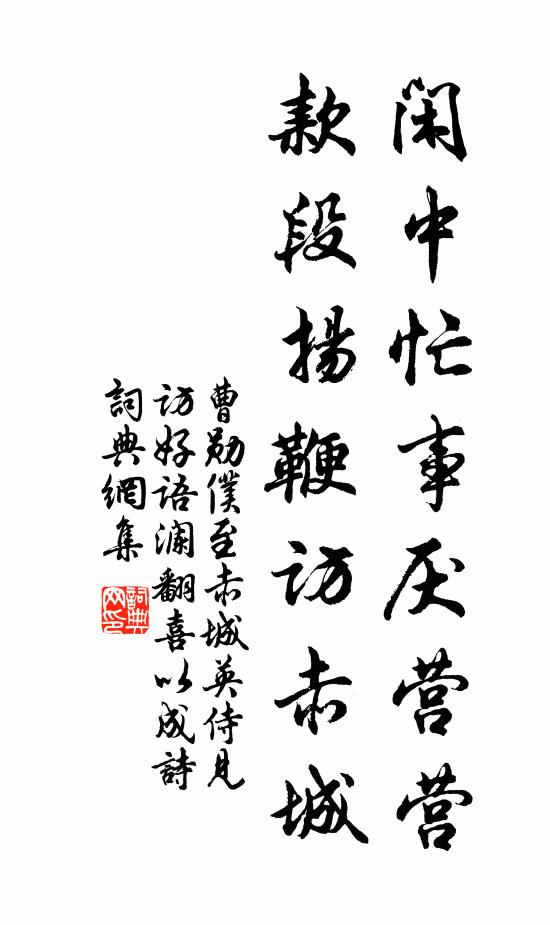 闲中忙事厌营营
款段揚鞭访赤城
曹勋僕至赤城英侍見
访好语澜翻喜以成詩
詞典網集
詞典
网印